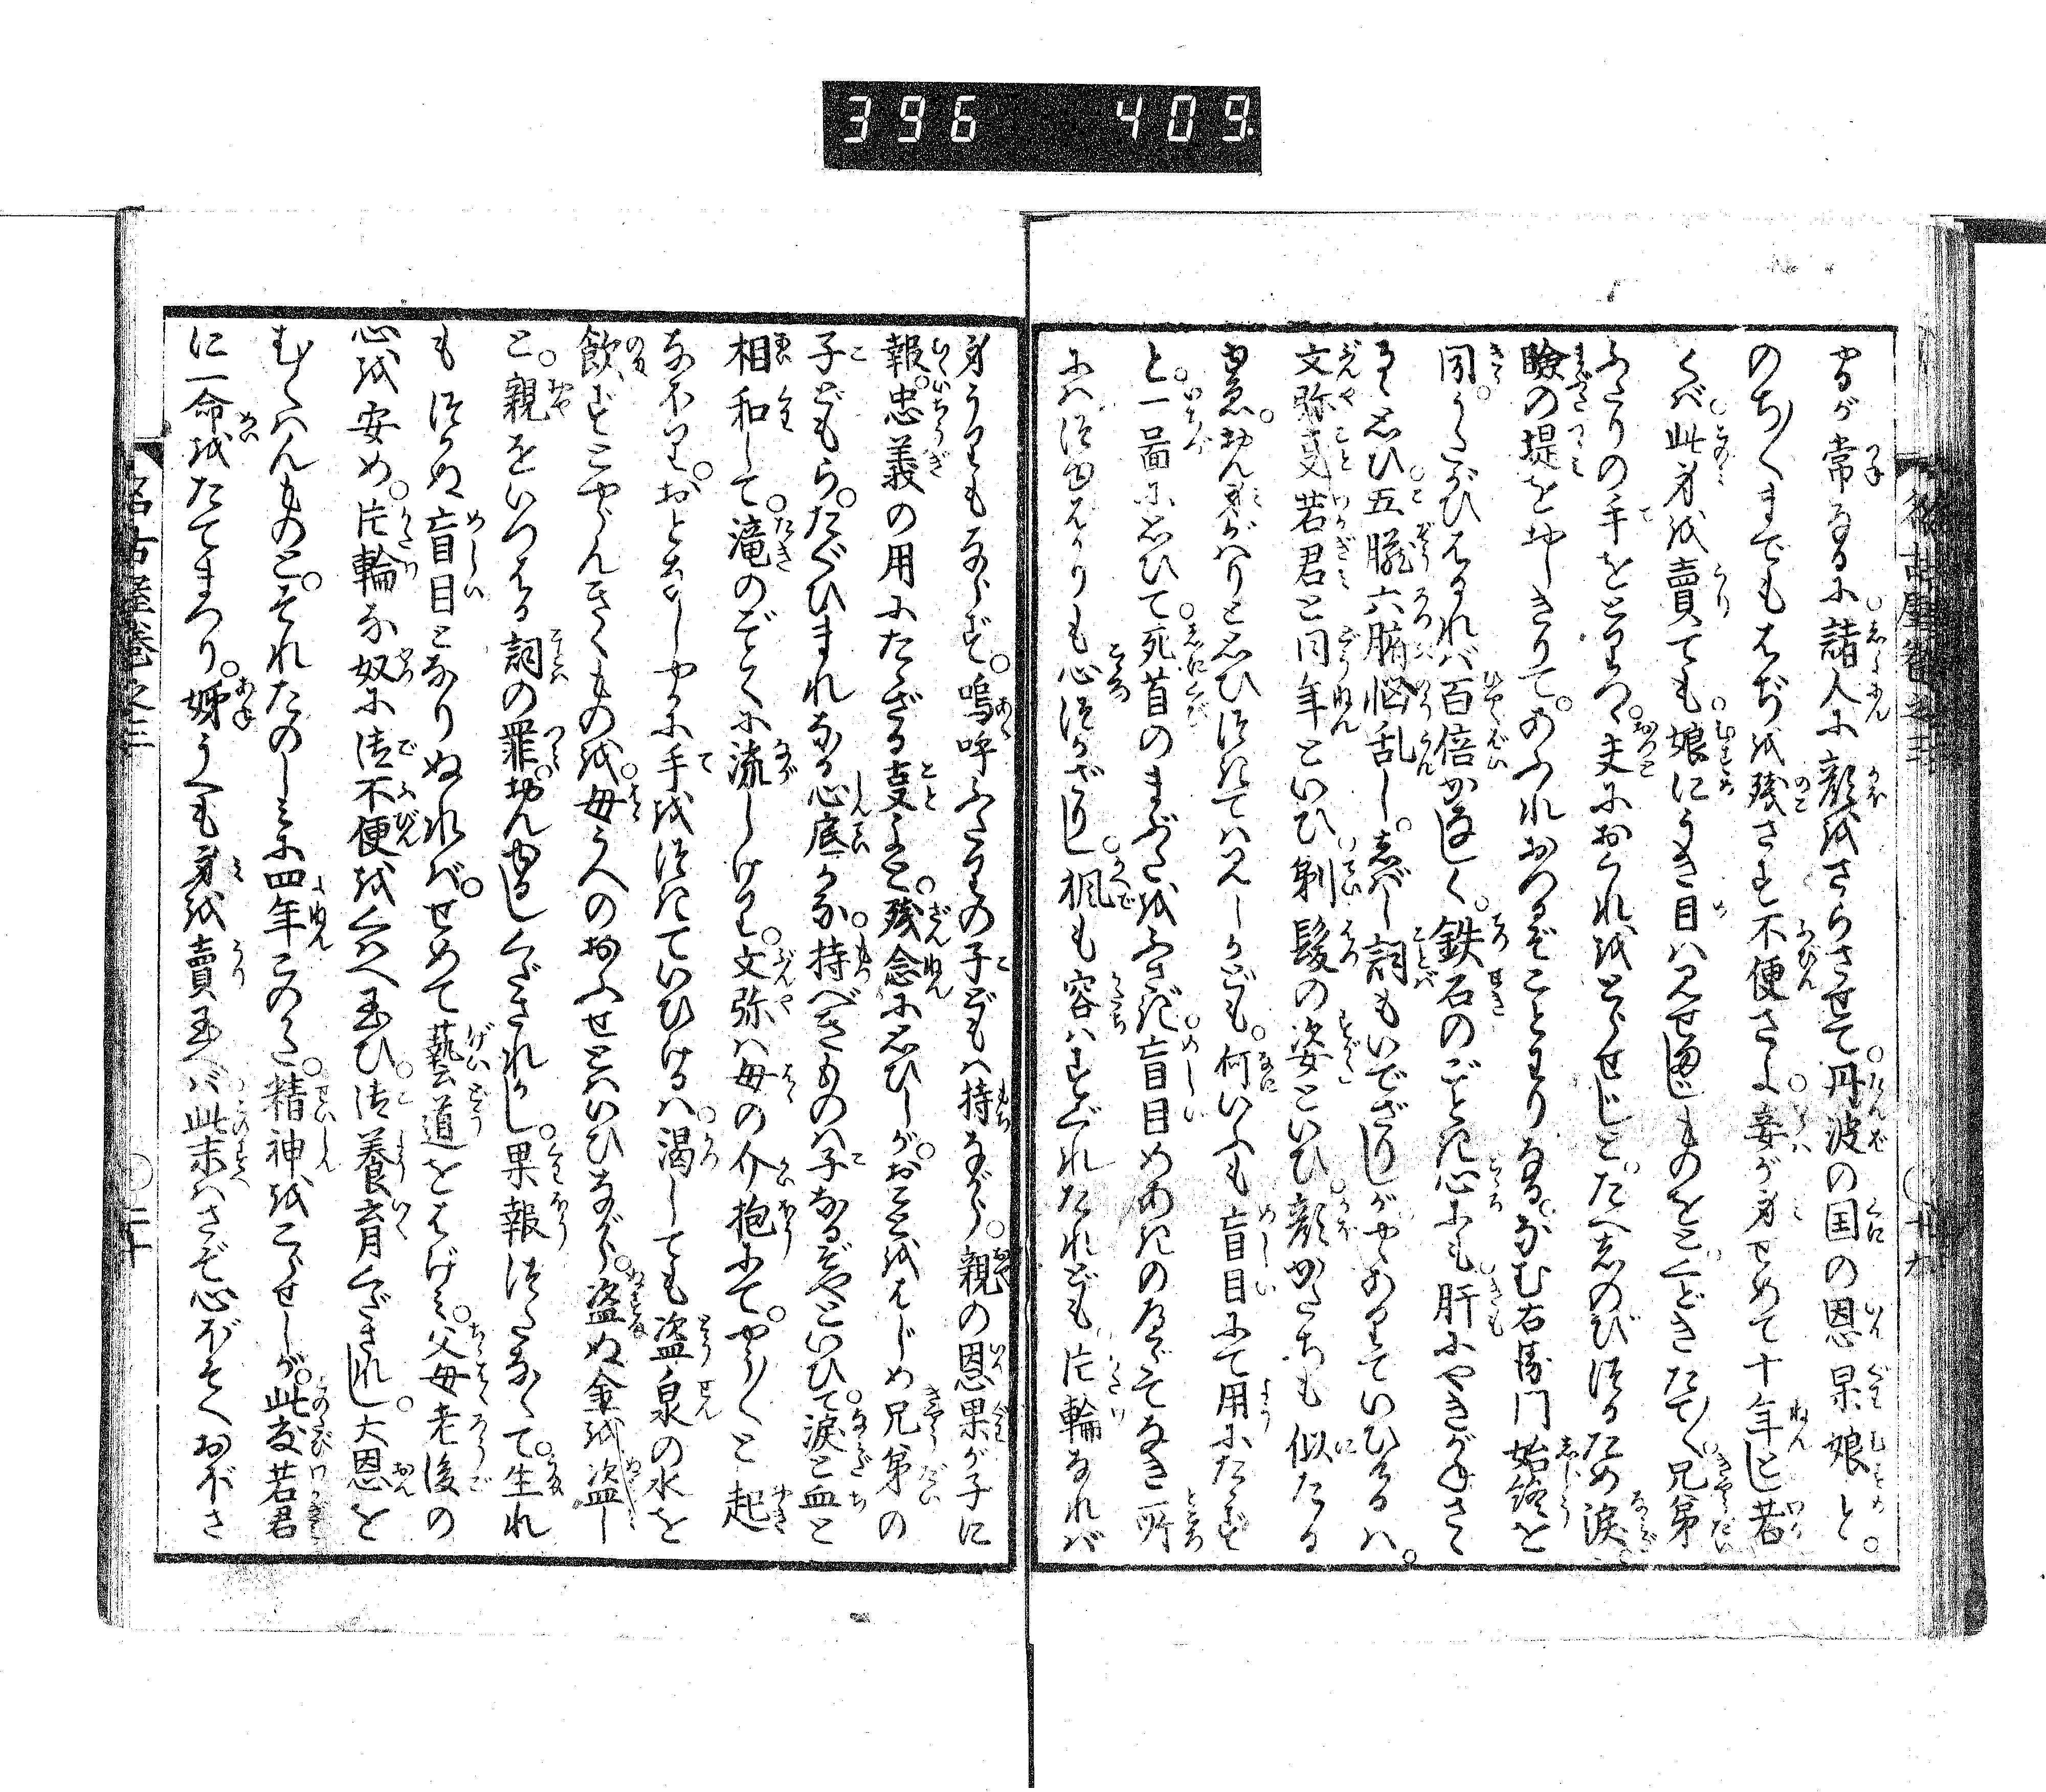 396 409
やるが常なるに諸人に顔をさらさせて。丹波の国の恩果娘と。
のち〳〵までもはぢを残さす不便さよ妾が身せめて十年も若
くば此身を賣ても娘にうき目は見せまじものをとくどきたて〳〵兄弟
ふたりの手をとりつゝ夫におくれをとらせじと。たへしのび来るため涙。
瞼の堤をおしきりて。あふれおつるぞことわりなる。なむ右衛門始終を
聞。うたがひはるれば百倍かなしく。鉄石のごとき心にも肝にやきがねさゝ
るゝ思ひ五臓六腑悩乱し。しばし詞もいでざりしがやゝありていひけるは。
文弥事若君と同年といひ剃髪の姿といひ顔かたちも似たる
ゆゑ。おん身がはりと思ひ付ては見しかども。何いふも盲目にて用にたゝず
と。一図に思ひて死首のまぶたをふさげば盲目めあきのへだてなき所
には心付ざりし。楓も容はすぐれたれども片輪なれば
身うりもならず。嗚呼ふたりの子どもは持ながら。親の恩果が子に
報忠義の用にたゝざる事よと。残念に思ひしが。おことをはじめ兄弟の
子どもら。たぐひまれなる心底かな。持べきものは子なるぞやといひて。涙と血と
相和して。滝のごとくに流しけり。文弥は母の介抱にて。やう〳〵と起
なほり。おとなしやかに手をつきていひけるは。渇しても盗泉の水を
飲ずとやらんきくものを。母うへのおふせとはいひながら。盗ぬ金を盗し
と。親をいつはる詞の罪。おんゆるしくだされかし。果報つたなくて。生れ
もつかぬ盲目となりぬれば。せめて藝道をはげみ。父母老後の
心を安め。片輪な奴に御不便をくはへ玉ひ。御養育くだされし。大恩を
むくはんものと。それたのしみに四年このかた。精神をこらせしが。此度若君
に一命をたてまつり。姉うへも身を賣玉へば此末はさぞ心ぼそくおぼさ